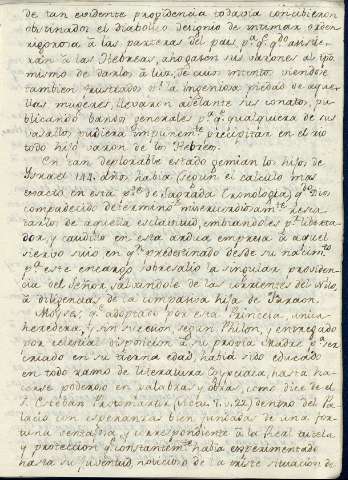 de tan evidente providencia todavia concibieron
obstinados el diabolico designio de intimar orden
rigorosa à las parteras del pais, pª qᵉ qdo asistie-
ran à las Hebreas, ahogasen sus varones al tpo
mismo de darlos à luz, de cuio intento viendose
tambien frustrados pʳ la ingeniosa piedad de aque-
llas mugeres, llevaron adelante sus conatos, pu-
blicando bandos generales pª qᵉ qualquiera de sus
vasallos pudiera impunemᵗᵉ precipitar en el rio
todo hijo varon de los Hebreos.
En tan deplorable estado gemian los hijos de
Israel 144 años havia (segun el calculo mas
exacto en esta pᵗᵉ de Sagrada Cronologia) qdo Dios
compadecido determinó misericordiosamᵗᵉ resca-
tarlos de aquella esclavitud, embiandoles pʳ liberta-
dor, y caudillo en esta ardua empresa à aquel
siervo suio en qⁿ predestinado desde su nacimᵗᵒ
pª este encargo sobresalio la singular providen-
cia del Señor, salvandole de las corrientes del Nilo,
à diligencias de la compasiva hija de Faraon.
Moyses, qᵉ adoptado por esta Princesa, unica
heredera, y sin succesion, segun Philon, y entregado
por celestial disposicion à su propia Madre pª ser
criado en su tierna edad, habia sido educado
en todo ramo de literatura Egypciaca, hasta ha-
cerse poderoso en palabras y obras, como dice de el
S. Esteban Protomartir (Actor. 7. v. 22.) dentro del Pa-
lacio con esperanzas bien fundadas de una for-
tuna ventajosa, y correspondiente à la Real tutela
y proteccion qᵉ constantemᵗᵉ habia experimentado
hasta su juventud, noticioso de la triste situacion de